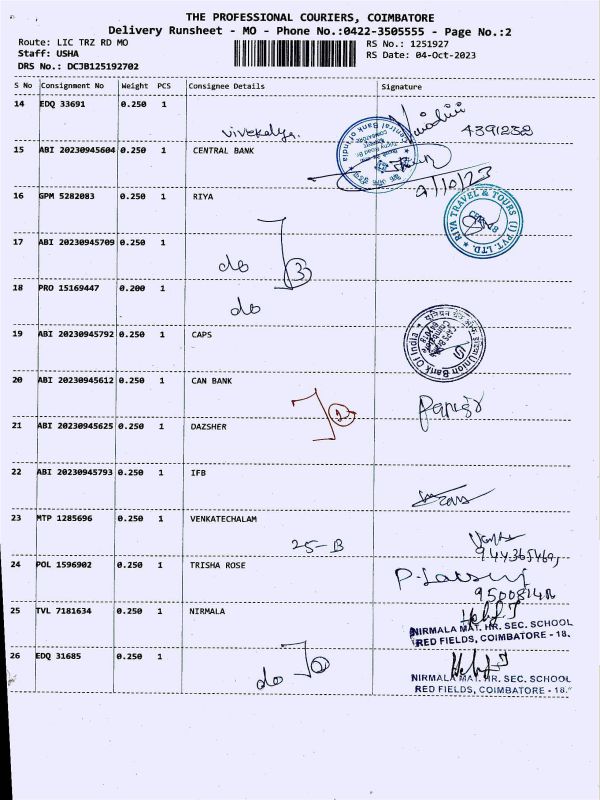 THE PROFESSIONAL COURIERS, COIMBATORE
Delivery Runsheet - MO - Phone No.:0422-3505555 - Page No.:2
Route: LIC TRZ RD MO RS No.: 1251927
Staff: USHA RS Date: 04-Oct-2023
DRS No.: DCJB125192702
S No Consignment No Weight PCS Consignee Details Signature
14 EDQ 33691 0.250 1
4391238
15 ABI 20230945604 0.250 1 CENTRAL BANK
Central Bank of India
9/10/23
16 GPM 5282083 0.250 1 RIYA
RIYA TRAVEL & TOURS (I) PVT. LTD.
17 ABI 20230945709 0.250 1
do 3
18 PRO 15169447 0.200 1
do
19 ABI 20230945792 0.250 1 CAPS
Union Bank Of India
20 ABI 20230945612 0.250 1 CAN BANK
2
21 ABI 20230945625 0.250 1 DAZSHER
22 ABI 20230945793 0.250 1 IFB
23 MTP 1285696 0.250 1 VENKATECHALAM
25-B
24 POL 1596902 0.250 1 TRISHA ROSE
25 TVL 7181634 0.250 1 NIRMALA
NIRMALA MAT. HR. SEC. SCHOOL
RED FIELDS, COIMBATORE - 18.
26 EDQ 31685 0.250 1
do
NIRMALA MAT. HR. SEC. SCHOOL
RED FIELDS, COIMBATORE - 18.